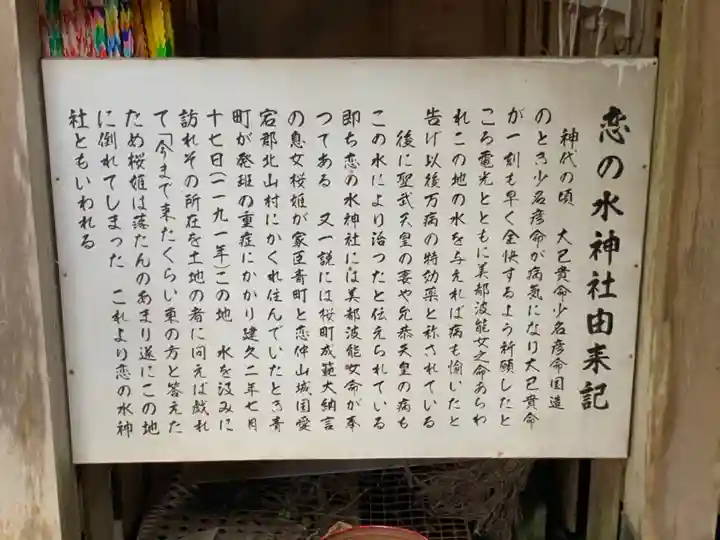 恋の水神社由来記
神代の頃　大己貴命少名彦命国造
のとき少名彦命が病気になり大己貴命
が一刻も早く全快するよう祈願したと
ころ電光とともに美都波能女之命あらわ
れこの地の水を与えれば病も愉いたと
告げ以後万病の特効薬と称されている
後に聖武天皇の妻や允恭天皇の病も
この水により治つたと伝えられている
即ち恋の水神社には美都波能女命が奉
つてある　又一説には桜町成範大納言
の息女桜姫が家臣青町と恋仲山城国愛
宕郡北山村にかくれ住んでいたとき青
町が発班の重症にかかり建久二年七月
十七日(一一九一年)この地　水を汲みに
訪れその所在を土地の者に問えば戯れ
て「今まで来たくらい東の方と答えた
ため桜姫は落たんのあまり遂にこの地
に倒れてしまった　これより恋の水神
社ともいわれる